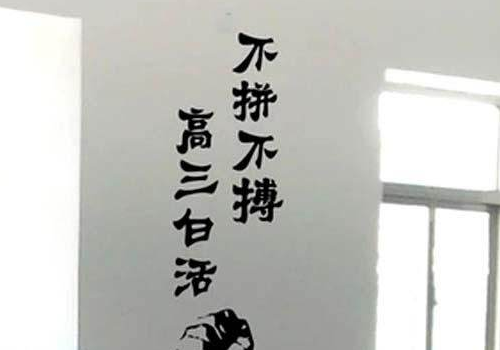 不拼不搏
高三白活